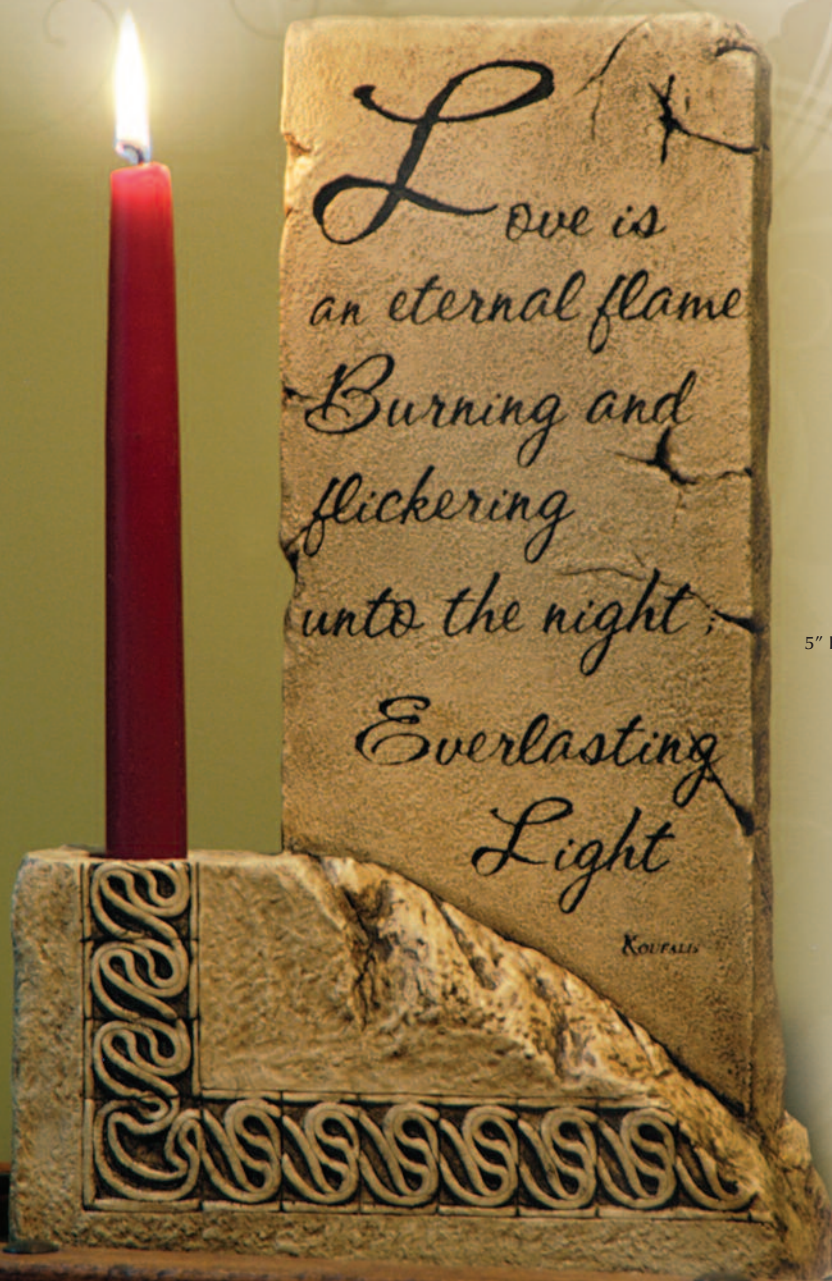 Love is
an eternal flame
Burning and
flickering
unto the night;
Everlasting
Light
KOUFALIS
5"